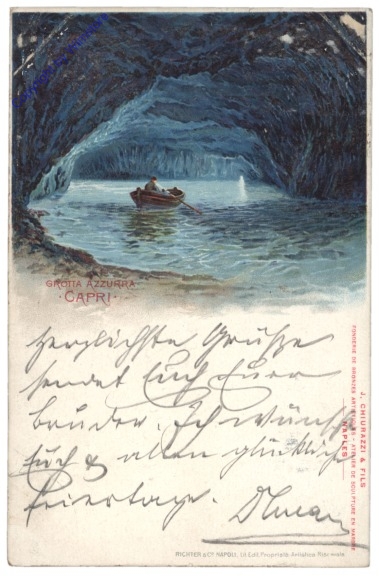 GROTTA AZZURRA
· CAPRI ·
Herzlichste Grüsse
sendet Euch Euer
Bruder. Ich wünsche
Euch & allen glückliche
Feiertage.
J. CHIURAZZI & FILS
FONDERIE DE BRONZES ARTISTIQUES - ATELIER DE SCULPTURE EN MARBRE
- NAPLES -
RICHTER & Cº NAPOLI, Ed. Proprietà Artistica Riservata